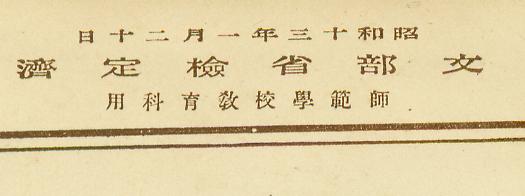 昭和十三年一月二十日
文部省檢定濟
師範學校敎育科用